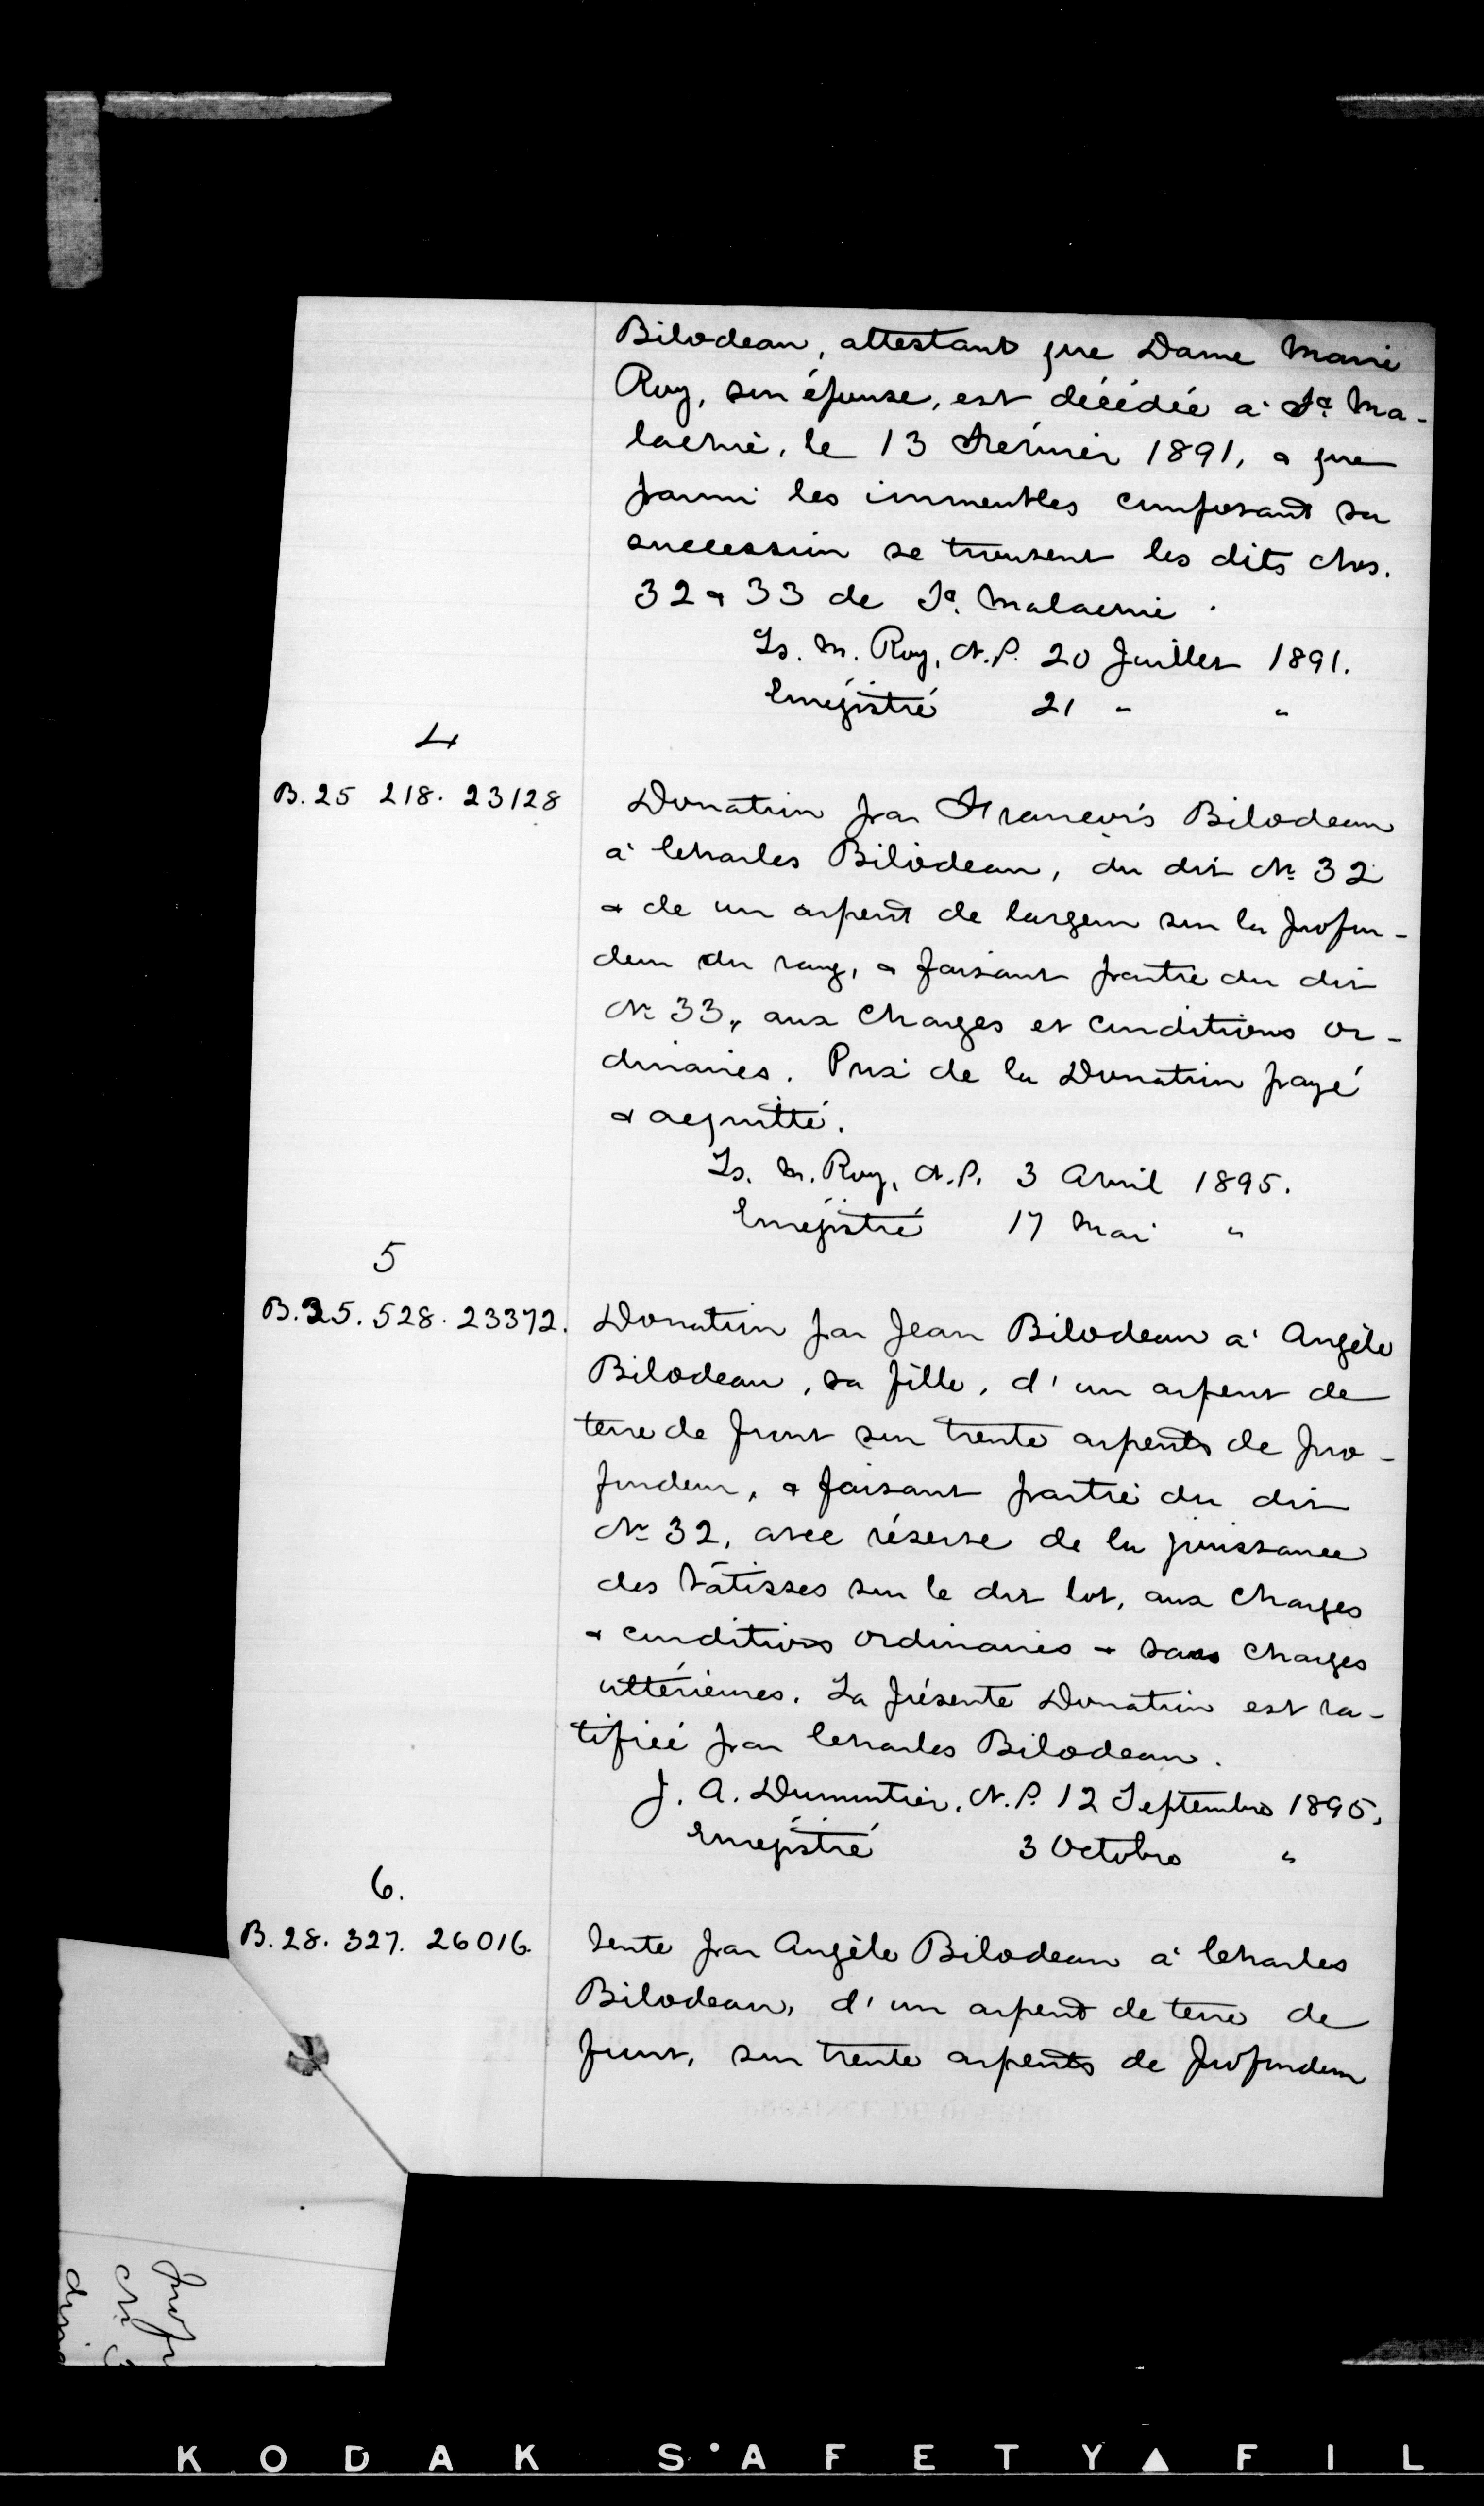 Bilodeau, attestant que Dame Marie
Roy, son épouse, est décédée à St. Ma-
lachie, le 13 Février 1891, & que
parmi les immeubles composant sa
succession se trouvent les dits Nos.
32 & 33 de St. Malachie.
Ls. M. Roy, N.P. 20 Juillet 1891.
Enrégistré 21 " "
4
B. 25 218. 23128
Donation par Francois Bilodeau
à Charles Bilodeau, du dit No 32
& de un arpent de largeur sur la profon-
deur du rang, & faisant partie du dit
No 33, aux charges et conditions or-
dinaires. Prix de la Donation payé
& acquitté.
Ls. M. Roy, N.P. 3 Avril 1895.
Enrégistré 17 Mai "
5
B. 25. 528. 23372.
Donation par Jean Bilodeau à Angèle
Bilodeau, sa fille, d'un arpent de
terre de front sur trente arpents de pro-
fondeur, & faisant partie du dit
No 32, avec réserve de la jouissance
des bâtisses sur le dit lot, aux charges
& conditions ordinaires & sans charges
ultérieures. La présente Donation est ra-
tifiée par Charles Bilodeau.
J. A. Dumontier, N.P. 12 Septembre 1895.
Enregistré 3 Octobre "
6.
B. 28. 327. 26016.
Vente par Angèle Bilodeau à Charles
Bilodeau, d'un arpent de terre de
front, sur trente arpents de profondeur
KODAK S'AFETY FIL